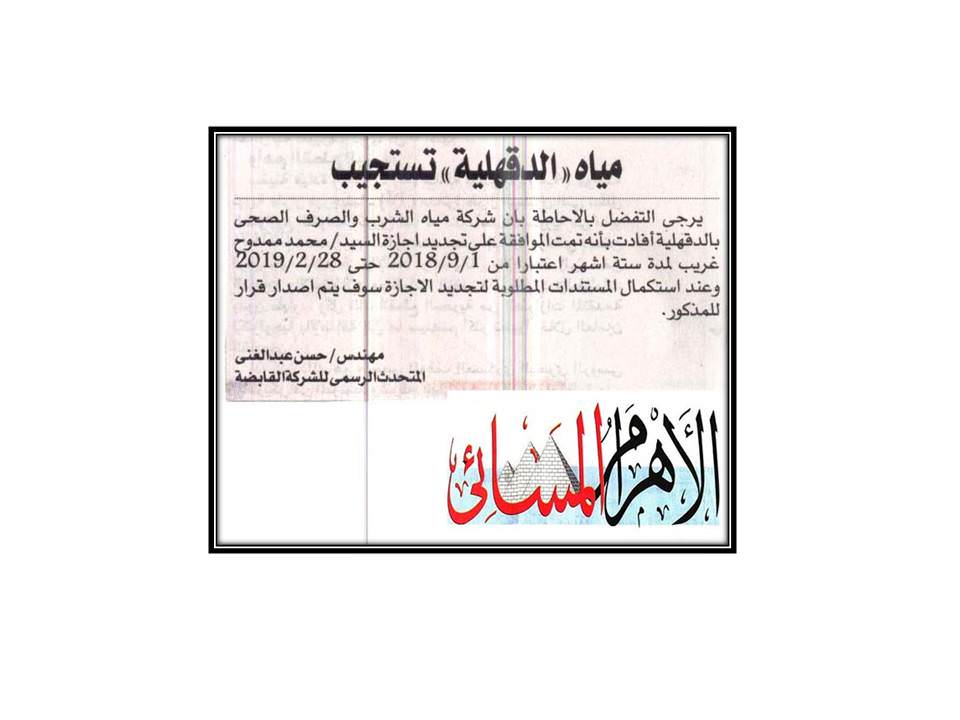 مياه «الدقهلية» تستجيب
يرجى التفضل بالاحاطة بان شركة مياه الشرب والصرف الصحى
بالدقهلية أفادت بأنه تمت الموافقة على تجديد اجازة السيد/ محمد ممدوح
غريب لمدة ستة اشهر اعتبارا من 2018/9/1 حتى 2019/2/28
وعند استكمال المستندات المطلوبة لتجديد الاجازة سوف يتم اصدار قرار
للمذكور.
مهندس/ حسن عبدالغنى
المتحدث الرسمى للشركة القابضة
الأهرام المسائى